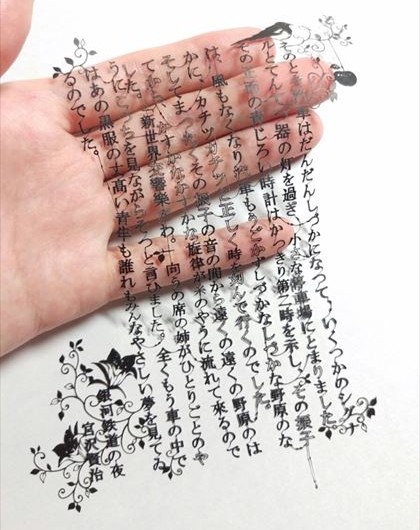 そのとき汽車はだんだんしづかになつて、いくつかのシグナ
ルとてんてつ器の灯を過ぎ、小さな停車場にとまりました。
その正面の青じろい時計はかつきり第二時を示し、その振子
は、風もなくなり汽車もうごかずしづかなしづかな野原のな
かに、カチツカチツと正しく時を刻んで行くのでした。
そしてまつたくその振子の音の間から遠くの遠くの野原のは
てから、かすかなかすかな旋律が糸のやうに流れて来るので
した。「新世界交響楽だわ。」向うの席の姉がひとりごとのや
うにこつちを見ながらそつと言ひました。全くもう車の中で
はあの黒服の丈高い青年も誰れもみんなやさしい夢を見てゐ
るのでした。
銀河鉄道の夜
宮沢賢治